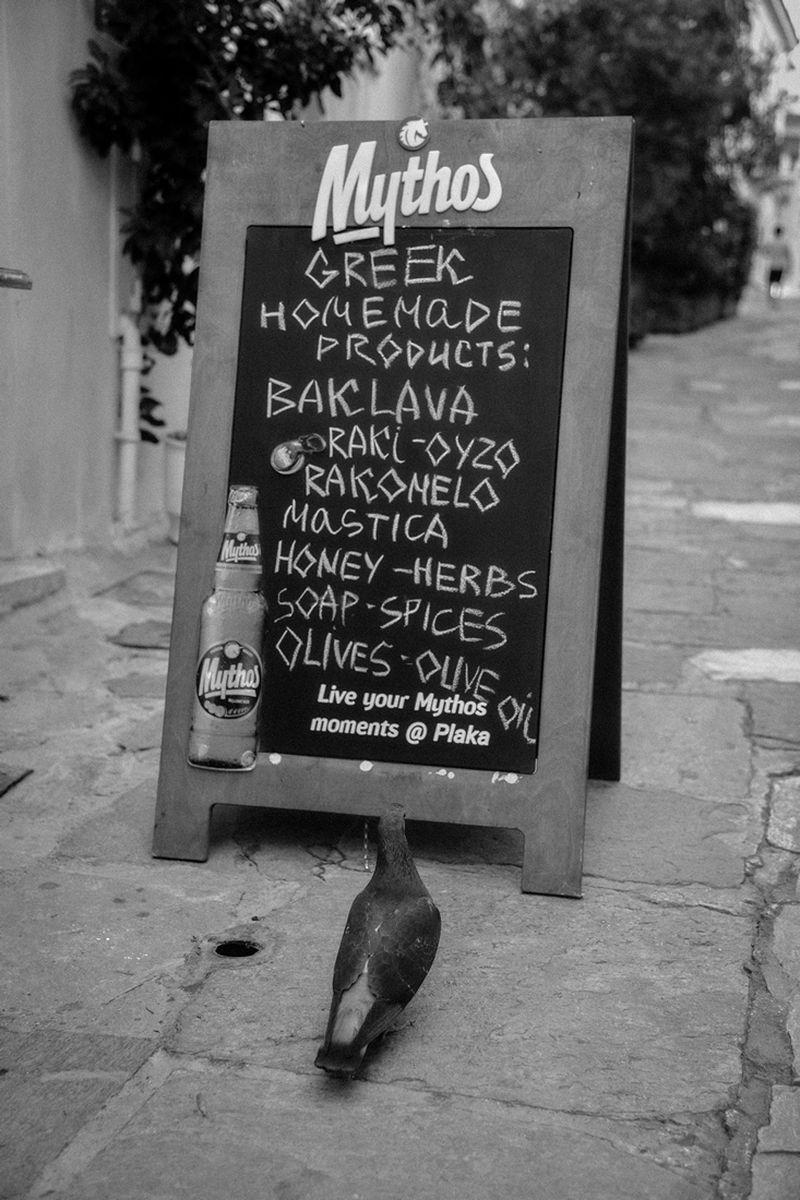 Mythos
GREEK
HOMEMADE
PRODUCTS:
BAKLAVA
RAKI-OYZO
RAKOMELO
MASTICA
HONEY-HERBS
SOAP-SPICES
OLIVES-OLIVE OIL
Live your Mythos
moments @ Plaka
Mythos
Mythos